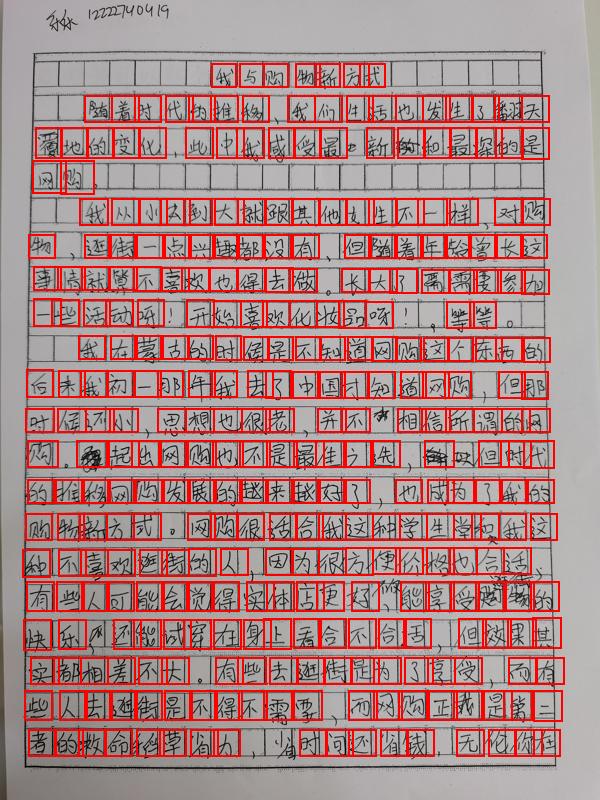 12222740419
我与购物新方式
随着时代的推移，我们生活也发生了翻天
覆地的变化，些中我感受最新和最深的是
网购。
我从小去到大就跟其他女生不一样，对购
物，逛街一点兴趣都没有，但随着年龄曾长这
事情就算不喜欢也得去做。长大了需需要参加
一些活动呀！开始喜欢化妆品呀！，等等。
我在蒙古的时侯是不知道网购这个东西的
后来我初一那年我去了中国才知道网购，但那
时候还小，思想也很老，并不相信所谓的网
购。起出网购也不是最佳之选，但时代
的推移网购发展的越来越好了，也成为了我的
购物新方式。网购很适合我这种学生党和我这
种不喜欢逛街的人，因为很方便价格也合适，
有些人可能会觉得实体店更好，能享受逛街的
快乐，还能试穿在身上看合不合适，但效果其
实都相差不大。有些去逛街是为了享受，而有
些人去逛街是不得不需要，而网购正我是第二
者的救命稻草省力，省时间还省钱，无伦你在